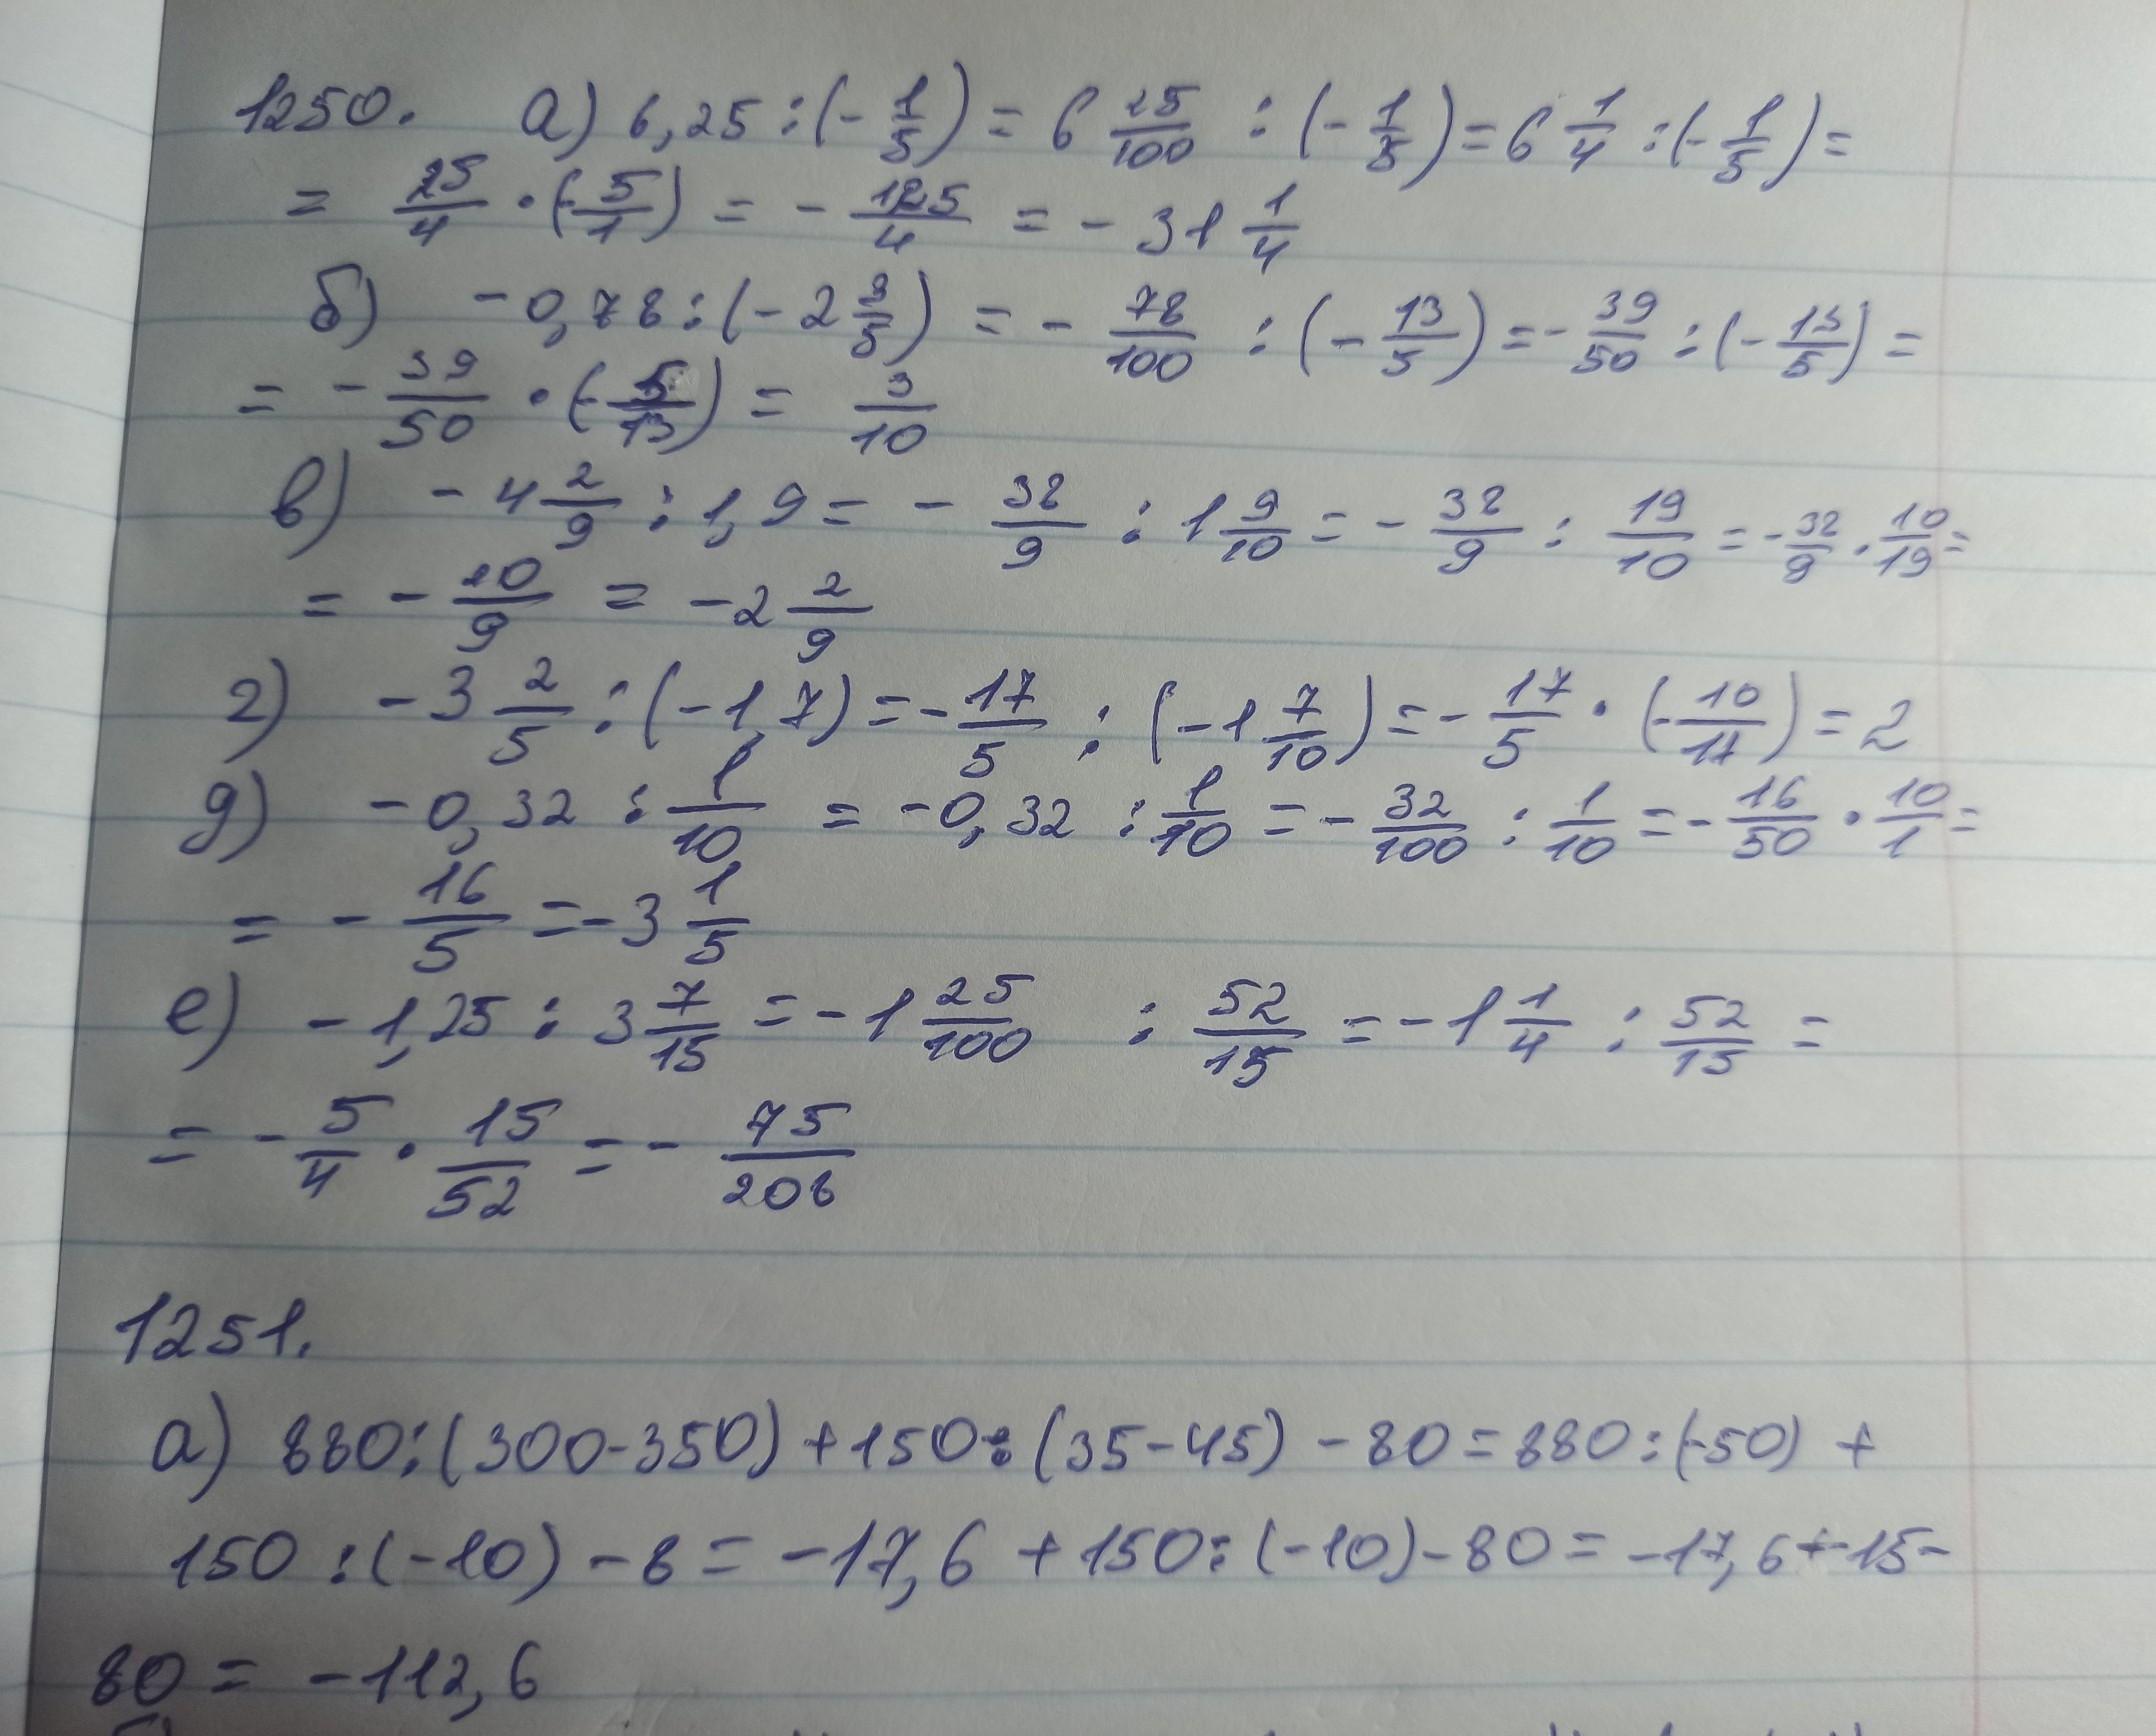 1250. а) 6,25 : (- 1/5) = 6 25/100 : (- 1/5) = 6 1/4 : (- 1/5) =
= 25/4 · (- 5/1) = - 125/4 = - 31 1/4
б) - 0,78 : (- 2 3/5) = - 78/100 : (- 13/5) = - 39/50 : (- 13/5) =
= - 39/50 · (- 5/13) = 3/10
в) - 4 2/9 : 1,9 = - 38/9 : 1 9/10 = - 38/9 : 19/10 = - 38/9 · 10/19 =
= - 20/9 = - 2 2/9
г) - 3 2/5 : (- 1,7) = - 17/5 : (- 1 7/10) = - 17/5 · (- 10/17) = 2
д) - 0,32 : 1/10 = - 0,32 : 1/10 = - 32/100 : 1/10 = - 16/50 · 10/1 =
= - 16/5 = - 3 1/5
е) - 1,25 : 3 7/15 = - 1 25/100 : 52/15 = - 1 1/4 : 52/15 =
= - 5/4 · 15/52 = - 75/208
1251.
а) 880 : (300 - 350) + 150 : (35 - 45) - 80 = 880 : (-50) +
150 : (-10) - 8 = - 17,6 + 150 : (-10) - 80 = - 17,6 + - 15 -
80 = - 112,6